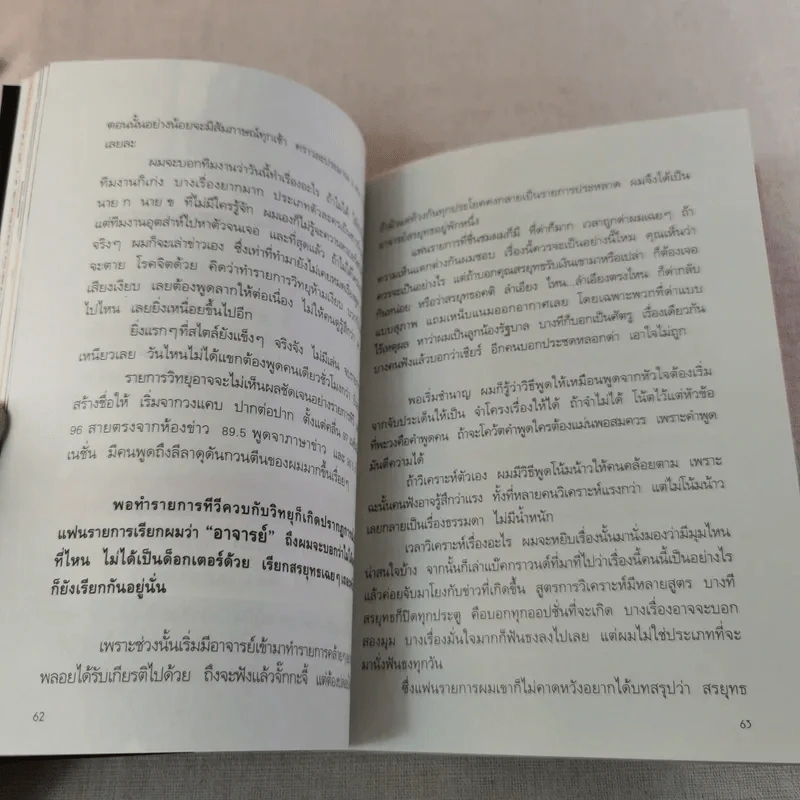 ตอนนั้นอย่างน้อยจะมีสัมภาษณ์ทุกเช้า
เลยละ
ผมจะบอกทีมงานว่าวันนี้ทำเรื่องอะไร ถ้าไม่ได้
ทีมงานก็เก่ง บางเรื่องยากมาก ประเภทตัวละคร
นาย ก นาย ข ที่ไม่มีใครรู้จัก ผมเองก็ไม่รู้จะ
แต่ทีมงานอุตส่าห์ไปหาตัวจนเจอ และที่สุดแล้ว ถ้าไม่ได้
จริงๆ ผมก็จะเล่าข่าวเอง ซึ่งเท่าที่ทำมายังไม่เคย
จะตาย โรคจิตด้วย คิดว่าทำรายการวิทยุห้ามเงียบ
เสียงเงียบ เลยต้องพูดลากให้ต่อเนื่อง ไม่ให้คนรู้สึกว่า
ไปไหน เลยยิ่งเหนื่อยขึ้นไปอีก
ยิ่งแรกๆ ที่สไตล์ยังแข็งๆ จริงจัง ไม่มีเล่น
เหนียวเลย วันไหนไม่ได้แขกต้องพูดคนเดียวชั่วโมงกว่า
รายการวิทยุอาจจะไม่เห็นผลชัดเจนอย่างรายการ
สร้างชื่อให้ เริ่มจากวงแคบ ปากต่อปาก ตั้งแต่คลื่น
96 สายตรงจากห้องข่าว 89.5 พูดจาภาษาข่าว และ
เนชั่น มีคนพูดถึงลีลาดุดันกวนตีนของผมมากขึ้นเรื่อยๆ
พอทำรายการทีวีควบกับวิทยุก็เกิดปรากฏการณ์
แฟนรายการเรียกผมว่า “อาจารย์” ถึงผมจะบอกว่า
ที่ไหน ไม่ได้เป็นด็อกเตอร์ด้วย เรียกสรยุทธเฉยๆ
ก็ยังเรียกกันอยู่นั่น
เพราะช่วงนั้นเริ่มมีอาจารย์เข้ามาทำรายการคล้ายๆ
พลอยได้รับเกียรติไปด้วย ถึงจะฟังแล้วจั๊กกะจี้
62
กลายเป็นรายการประหลาด ผมจึงได้เป็น
อาจารย์สรยุทธอยู่พักหนึ่ง
แฟนรายการที่ชื่นชมผมก็มี ที่ด่าก็มาก เวลาถูกด่าผมเฉยๆ ถ้า
ความเห็นแตกต่างกันผมชอบ เรื่องนี้ควรจะเป็นอย่างนี้ไหม คุณเห็นว่า
ควรจะเป็นอย่างไร แต่ถ้าบอกคุณสรยุทธรับเงินเขามาหรือเปล่า ก็ต้องเจอ
กันหน่อย หรือว่าสรยุทธอคติ ลำเอียง ไหน...ลำเอียงตรงไหน ก็ด่ากลับ
แบบสุภาพ แถมเหน็บแนมออกอากาศเลย โดยเฉพาะพวกที่ด่าแบบ
ไร้เหตุผล หาว่าผมเป็นลูกน้องรัฐบาล บางทีก็บอกเป็นศัตรู เรื่องเดียวกัน
บางคนฟังแล้วบอกว่าเชียร์ อีกคนบอกประชดหลอกด่า เอาใจไม่ถูก
พอเริ่มชำนาญ ผมก็รู้ว่าวิธีพูดให้เหมือนพูดจากหัวใจต้องเริ่ม
จากจับประเด็นให้เป็น จำโครงเรื่องให้ได้ ถ้าจำไม่ได้ โน้ตไว้แต่หัวข้อ
ที่พะวงคือคำพูดคน ถ้าจะโควัตคำพูดใครต้องแม่นพอสมควร เพราะคำพูด
มันตีความได้
ถ้าวิเคราะห์ตัวเอง ผมมีวิธีพูดโน้มน้าวให้คนคล้อยตาม เพราะ
ฉะนั้นคนฟังอาจรู้สึกว่าแรง ทั้งที่หลายคนวิเคราะห์แรงกว่า แต่ไม่โน้มน้าว
เลยกลายเป็นเรื่องธรรมดา ไม่มีน้ำหนัก
เวลาวิเคราะห์เรื่องอะไร ผมจะหยิบเรื่องนั้นมานั่งมองว่ามีมุมไหน
น่าสนใจบ้าง จากนั้นก็เล่าแบ็คกราวนด์ที่มาที่ไปว่าเรื่องนี้คนนี้เป็นอย่างไร
แล้วค่อยจับมาโยงกับข่าวที่เกิดขึ้น สูตรการวิเคราะห์มีหลายสูตร บางที
สรยุทธก็ปิดทุกประตู คือบอกทุกออปชั่นที่จะเกิด บางเรื่องอาจจะบอก
สองมุม บางเรื่องมั่นใจมากก็ฟันธงลงไปเลย แต่ผมไม่ใช่ประเภทที่จะ
มานั่งฟันธงทุกวัน
ซึ่งแฟนรายการผมเขาก็ไม่คาดหวังอยากได้บทสรุปว่า สรยุทธ
63